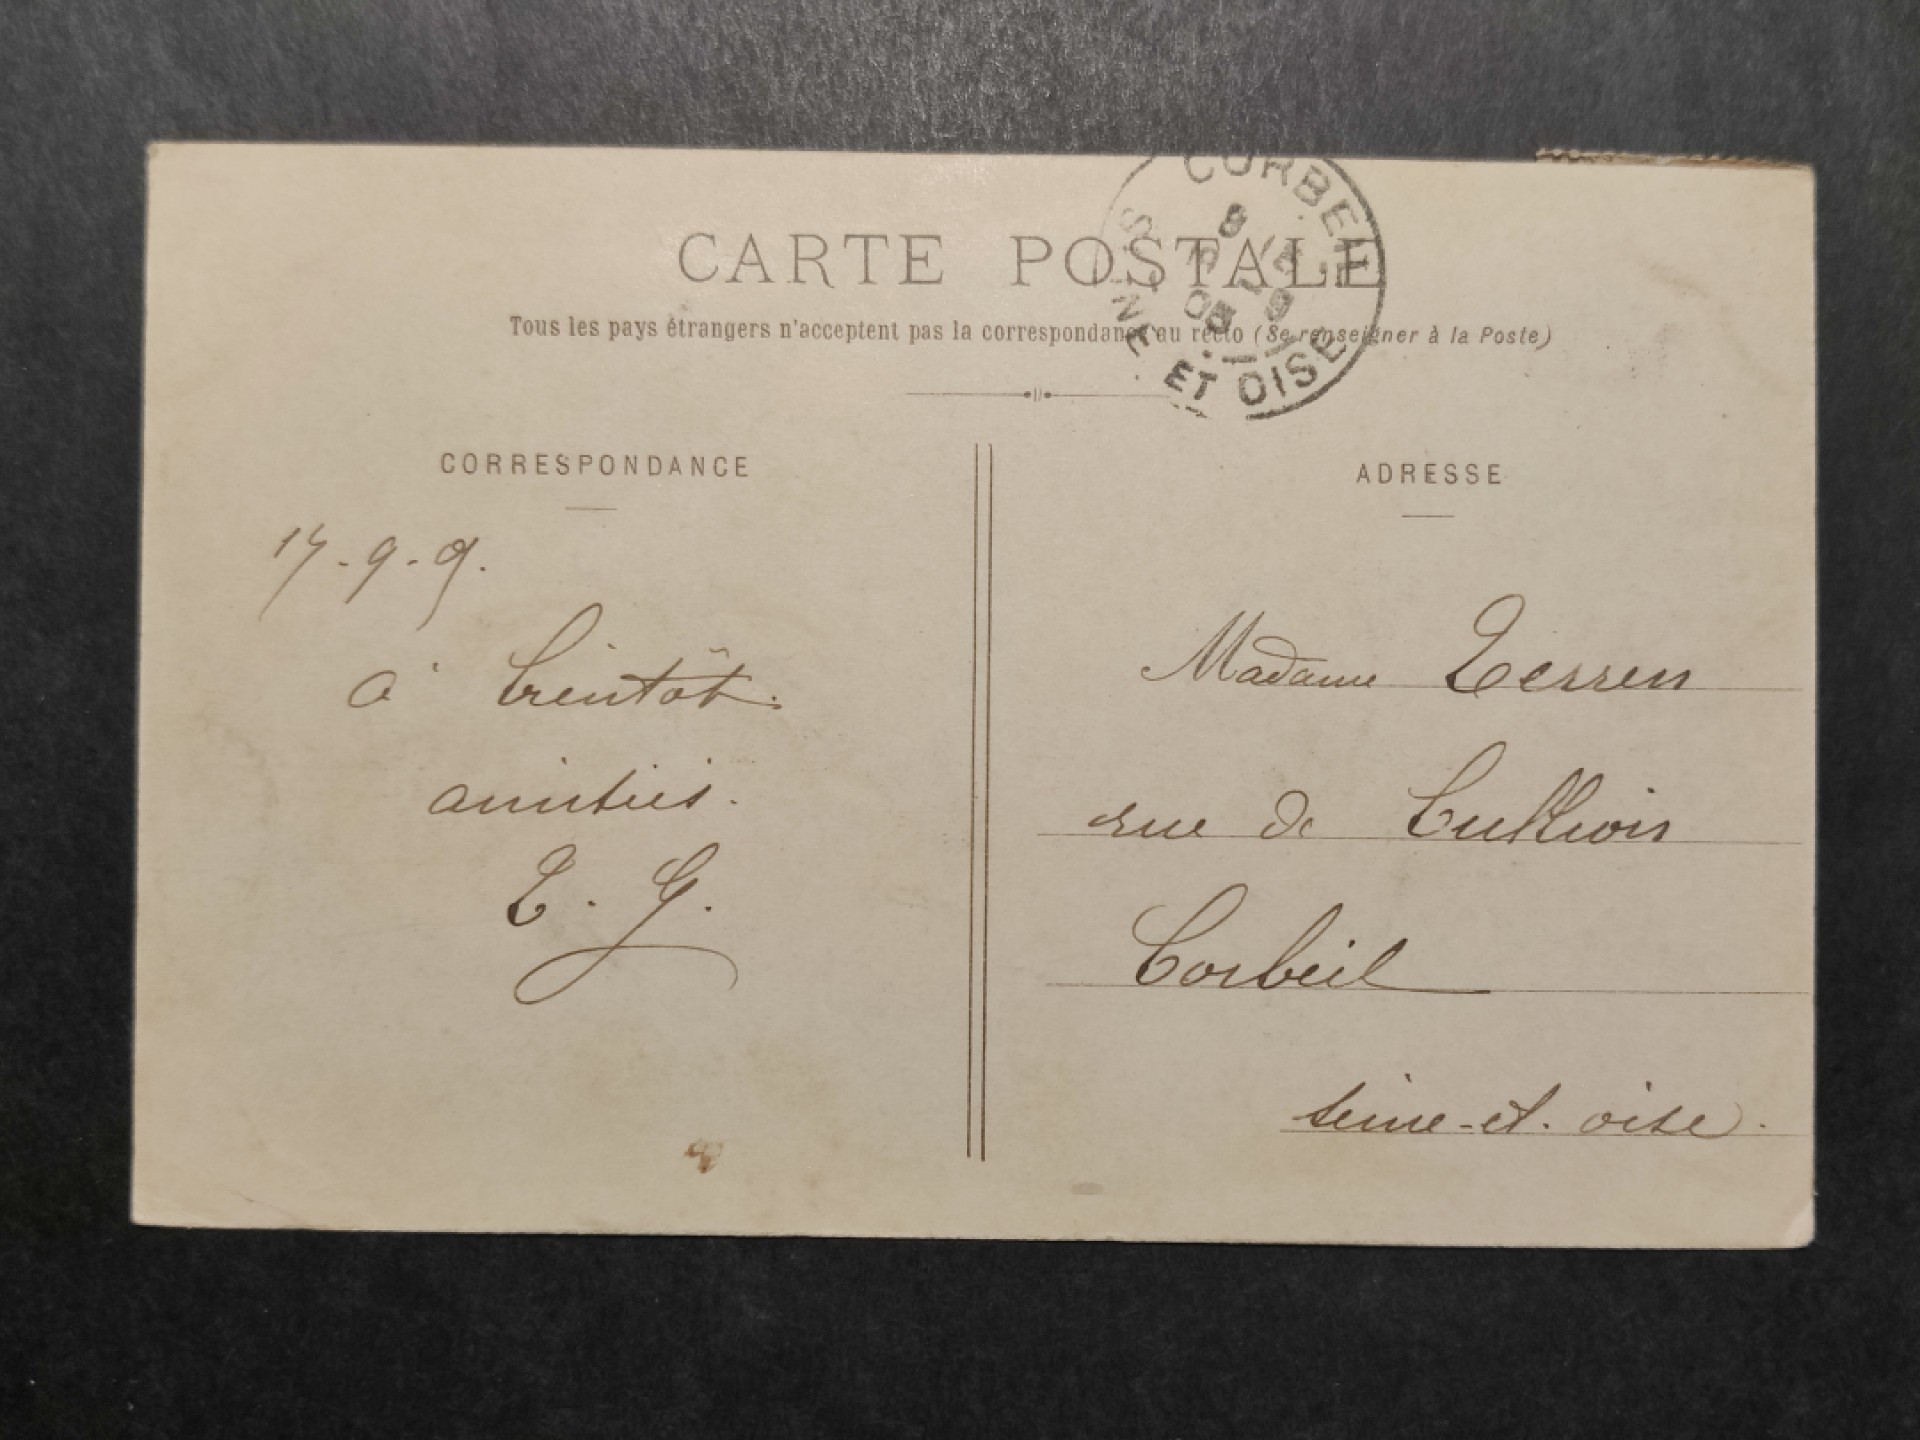 CORBEIL
SEINE ET OISE
CARTE POSTALE
Tous les pays étrangers n'acceptent pas la correspondance au recto (Se renseigner à la Poste)
CORRESPONDANCE
ADRESSE
-9-9.
à bientôt.
amitiés.
G.
Madame Terren
rue de
Corbeil
seine-et-oise.